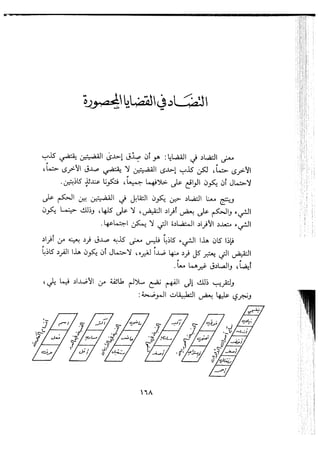 التضاد في القضايا المحصورة
معنى التضاد في القضايا: هو أن صدق إحدى القضيتين يقتضي كذب
الأخرى حتماً، لكن كذب إحدى القضيتين لا يقتضي صدق الأخرى حتماً،
لاحتمال أن يكون الواقع على خلافهما جميعاً، فتكونا عندئذٍ كاذبتين.
وينتج معنا التضاد حين يكون التقابل في القضيتين بين الحكم على
الشيء والحكم على بعض أفراد النقيض، لا على كلها، وذلك حينما يكون
الشيء متعدد الأفراد المتضادة التي لا يمكن اجتماعها.
فإذا كان هذا الشيء كاذباً فليس معنى كذبه صدق فرد بعينه من أفراد
النقيض التي يعتبر كل فرد منها ضداً لغيره، لاحتمال أن يكون هذا الفرد كاذباً
أيضاً، والصادق غيرهما معاً.
ولتقريب ذلك إلى الفهم نضع سلالم طائفة من الأضداد فيما يلي،
ونجري عليها بعض التطبيقات الموضحة:
١٦٨